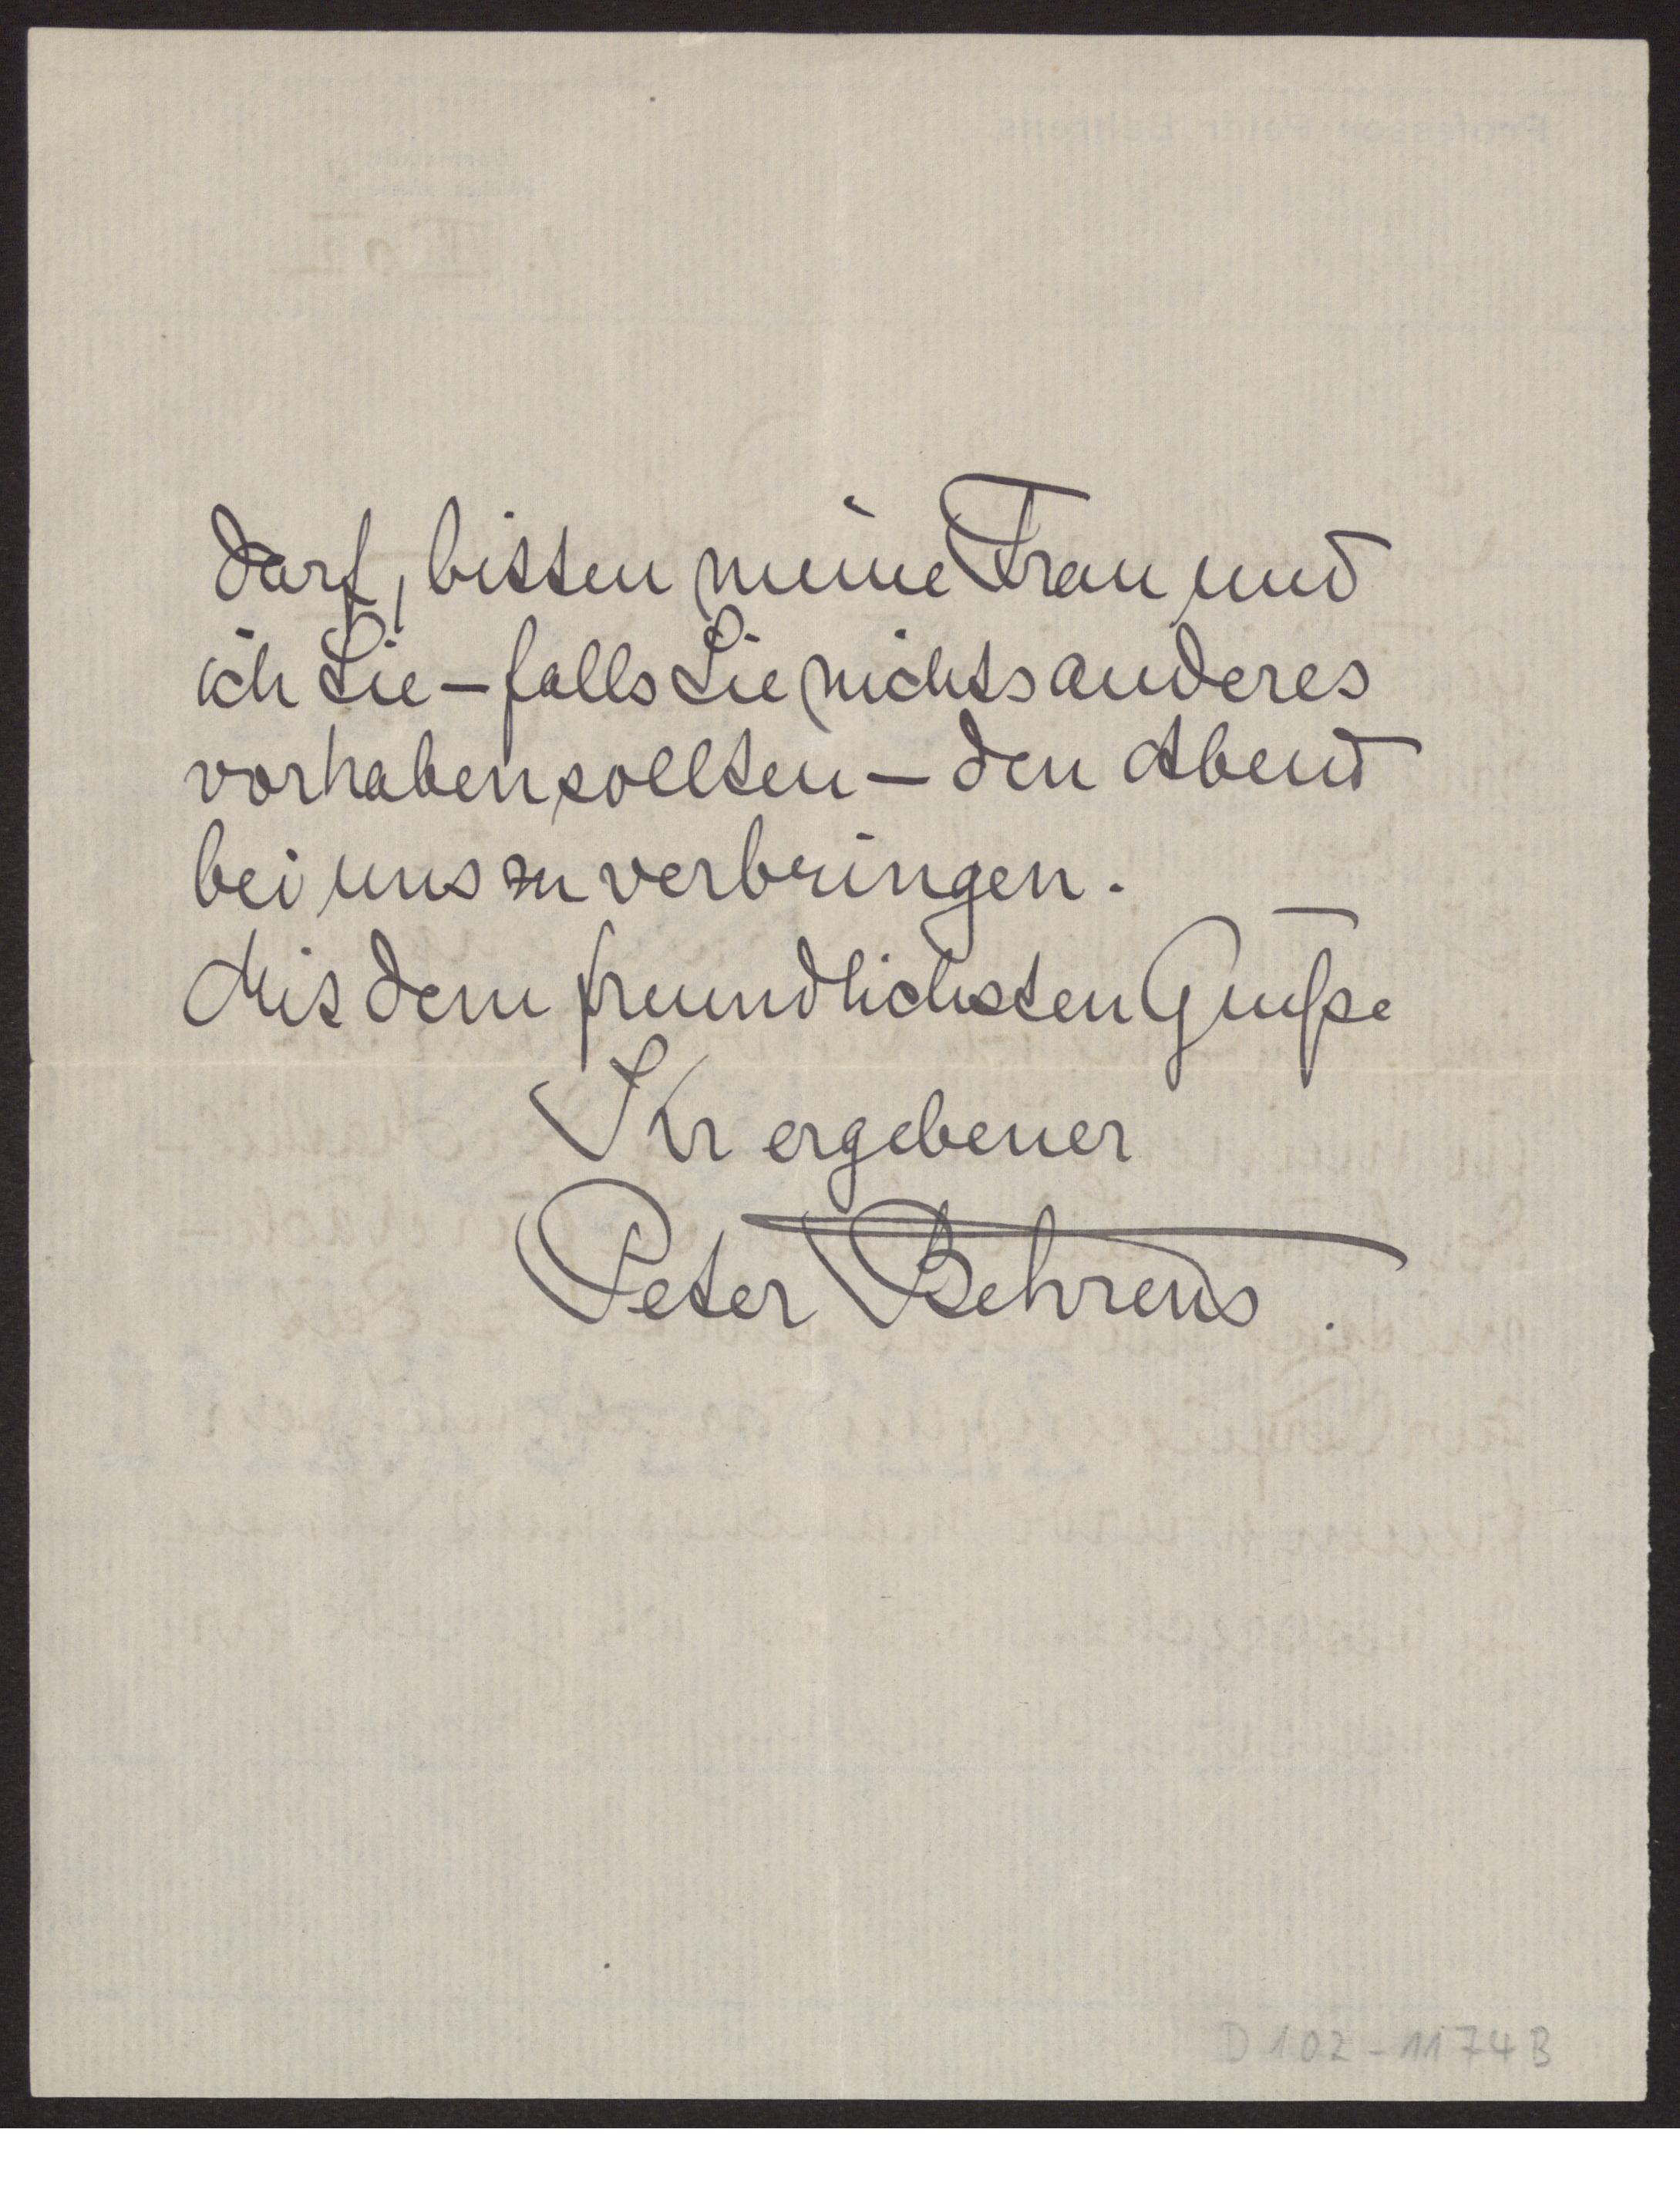 darf, bitten meine Frau und
ich Sie – falls Sie nichts anderes
vorhaben sollten – den Abend
bei uns zu verbringen.
Mit dem freundlichsten Gruße
Ihr ergebener
Peter Behrens.
D 102 - 1174 B